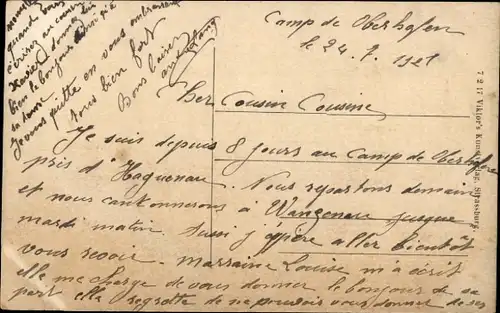 Camp de Oberhofen
le 24. 7. 1921
Cher Cousin Cousine
Je suis depuis 8 jours au Camp de Oberhofen
près d'Haguenau. Nous repartons demain
et nous cantonnerons à Wanzenau jusque
mardi matin. Aussi j'espère aller bientôt
vous revoir. Marraine Louise m'a écrit
elle me charge de vous donner le bonjour de sa
part elle regrette de ne pouvoir vous donner de ses
quand vous
écrirez au cousin
Xavier donnez lui
bien le bonjour
sa santé
Je vous quitte en vous embrassant
tous bien fort
Bons baisers
7 2 17 Viktor's Kunstverlag, Strassburg